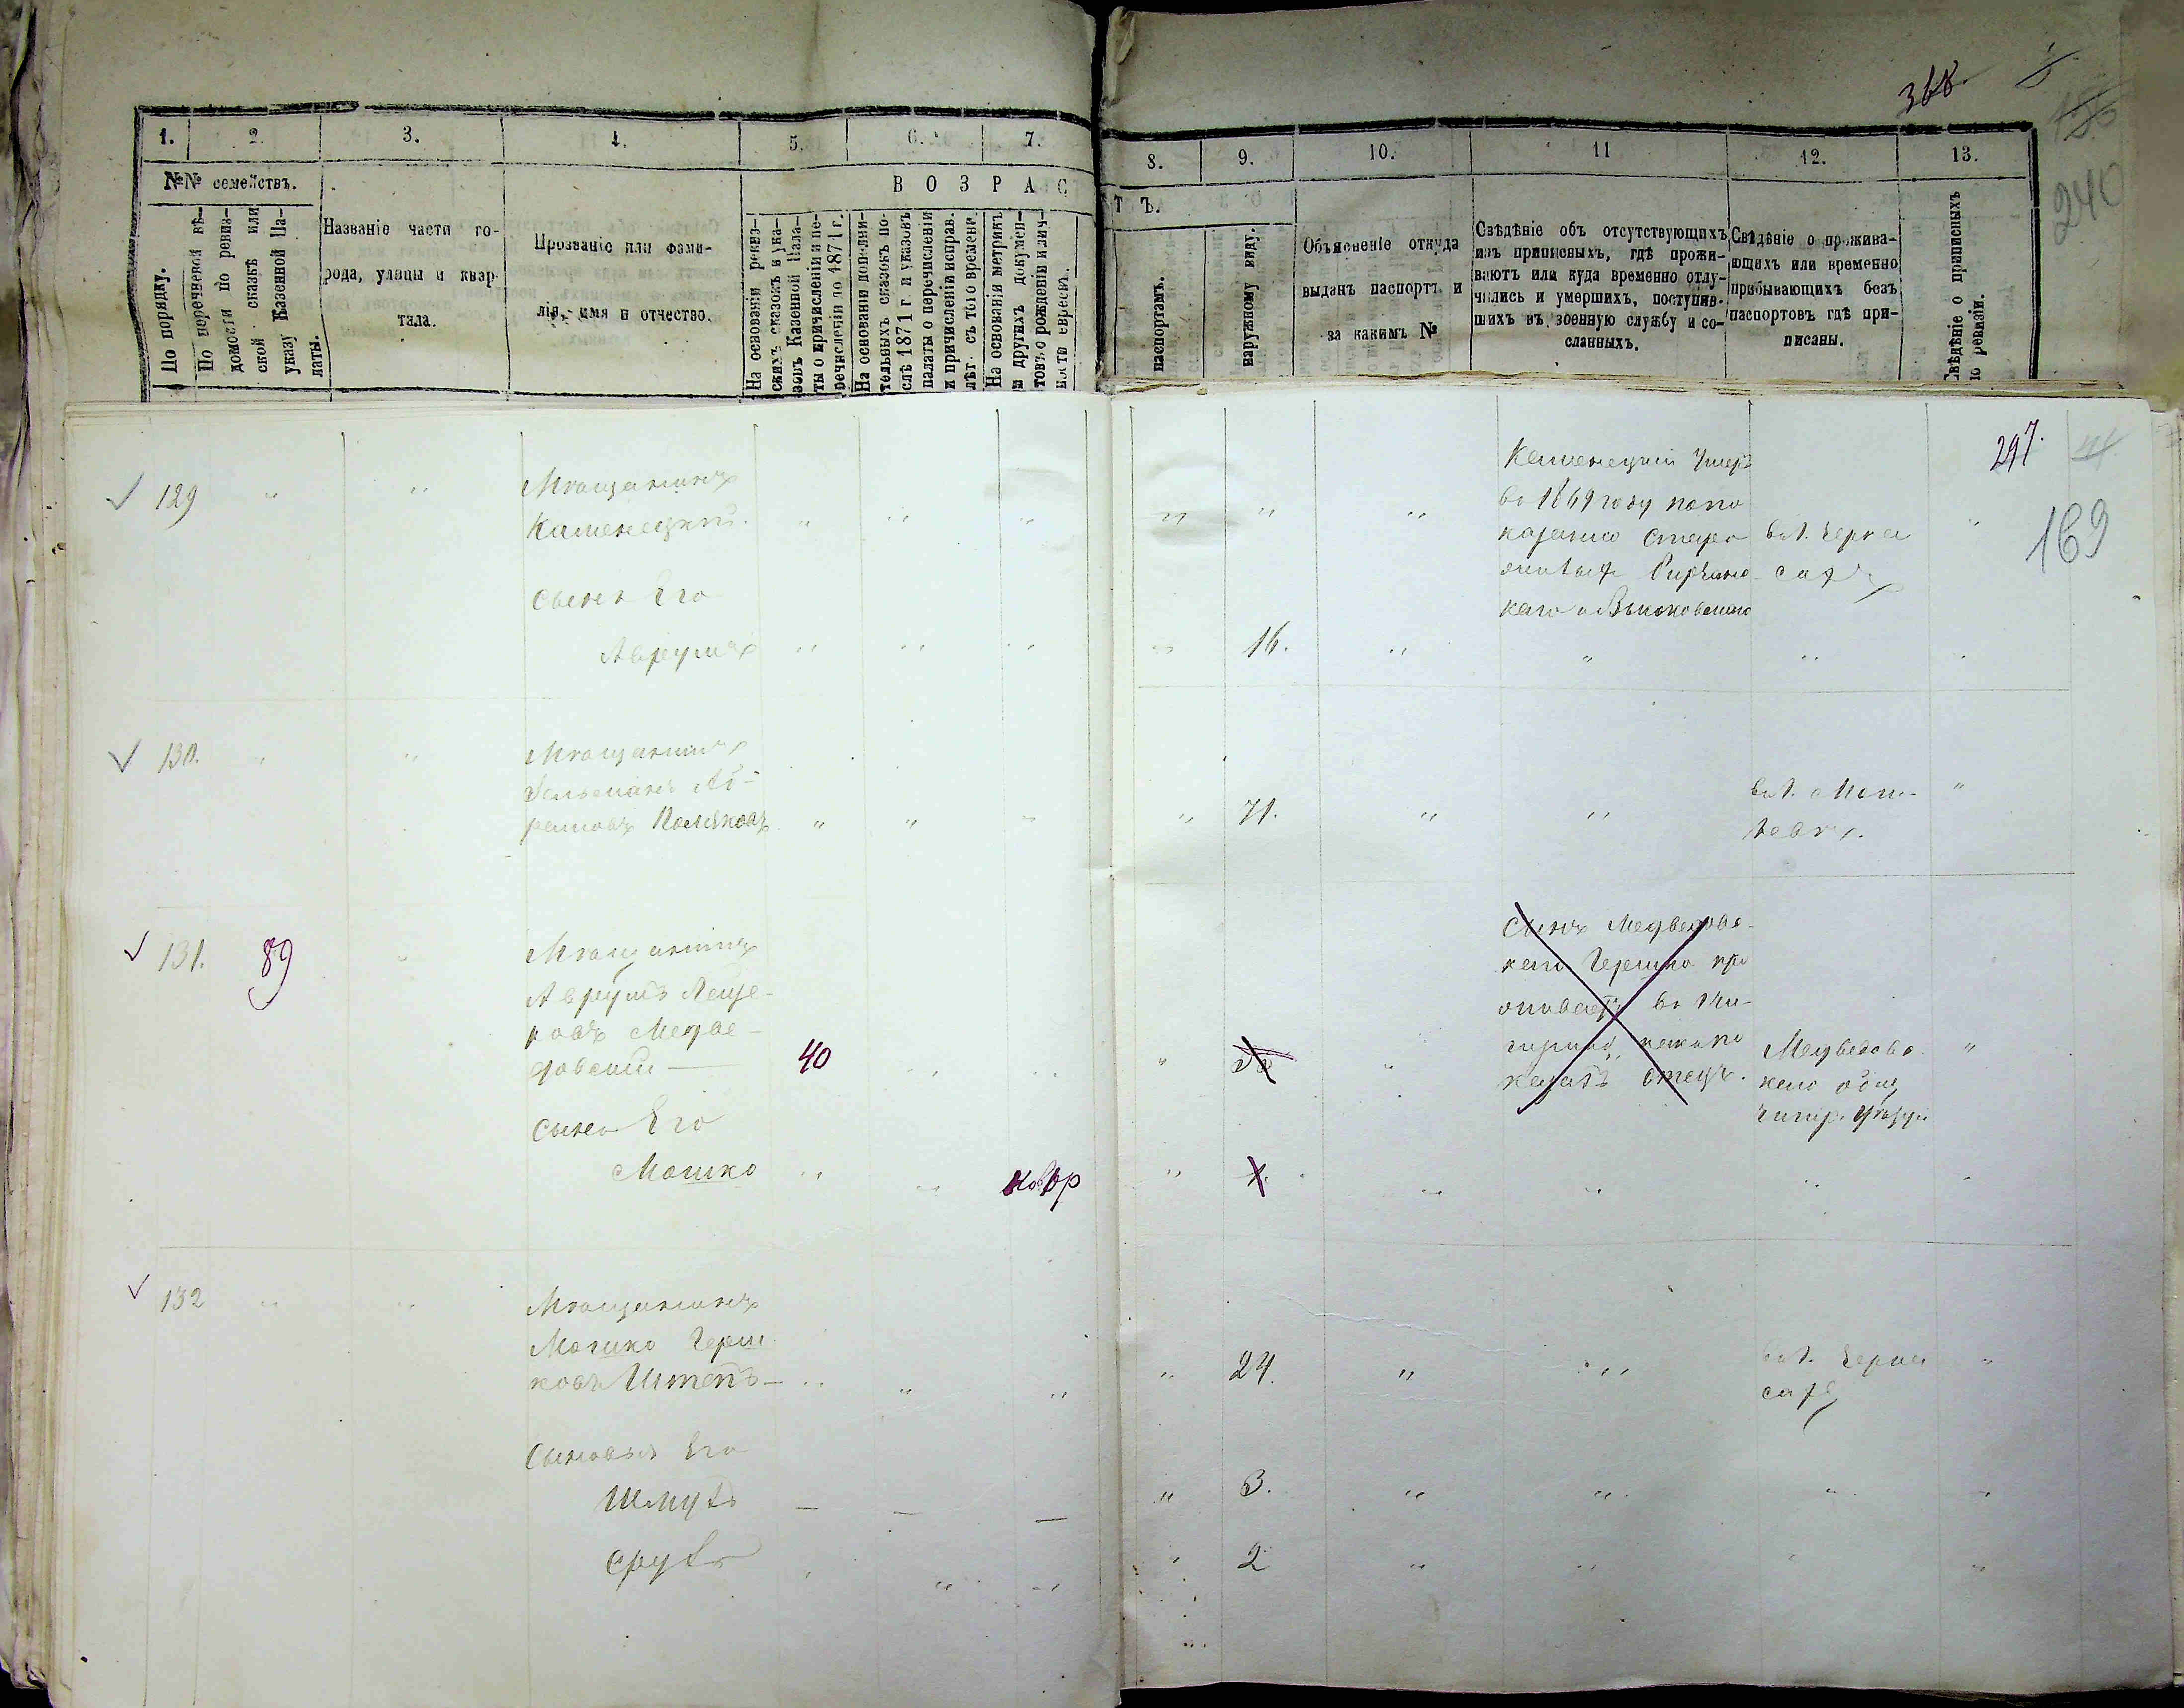 368.
240
1.
2.
3.
4.
5.
6.
7.
8.
9.
10.
11
12.
13.
№№ семействъ.
ВОЗРАС
ТЪ.
По порядку.
По перечневой вѣ-
домости по ревиз-
ской сказкѣ или
указу Казенной Па-
латы.
Названіе части го-
рода, улицы и квар-
тала.
Прозваніе или фами-
лія, имя и отчество.
На основаніи ревиз-
скихъ сказокъ и ука-
зовъ Казенной Пала-
ты о причисленіи и пе-
речисленіи до 1871 г.
На основаніи дополни-
тельныхъ сказокъ по-
слѣ 1871 г и указовъ
палаты о перечисленіи
и причисленіи исправ.
лѣт съ того времени.
На основаніи метрикъ
и другихъ докумен-
товъ о рожденіи и лич-
ности евреевъ.
паспортамъ.
наружному виду.
Объясненіе откуда
выданъ паспортъ и
за какимъ №
Свѣдѣніе объ отсутствующихъ
изъ приписныхъ, гдѣ прожи-
ваютъ или куда временно отлу-
чились и умершихъ, поступив-
шихъ въ военную службу и со-
сланныхъ.
Свѣдѣніе о прожива-
ющихъ или временно
прибывающихъ безъ
паспортовъ гдѣ при-
писаны.
Свѣдѣніе о приписныхъ
по ревизіи.
297.
169
129
Мѣщанинъ
Каменецкій.
Сынъ Его
Аврумъ
16.
Каменецкій Умеръ
въ 1869 году по по
казанію Старо
въ г. Черка
сахъ
130.
Мѣщанинъ
Аб-
рамовъ Поляковъ
71.
131.
89
Мѣщанинъ
Аврумъ Лейзе-
ровъ Медве-
довскій
40
Сынъ Его
Мошко
Сынъ Медведовс-
каго Гершко про
живаетъ въ Чи-
гиринѣ
казалъ Отецъ.
Медведовс
каго общ
Чигир. Уѣзда
132
Мѣщанинъ
Мошко Герш
ковъ Штепъ
24.
въ г. Черка
сахъ
Сыновья Его
Шмуль
3.
Сруль
2